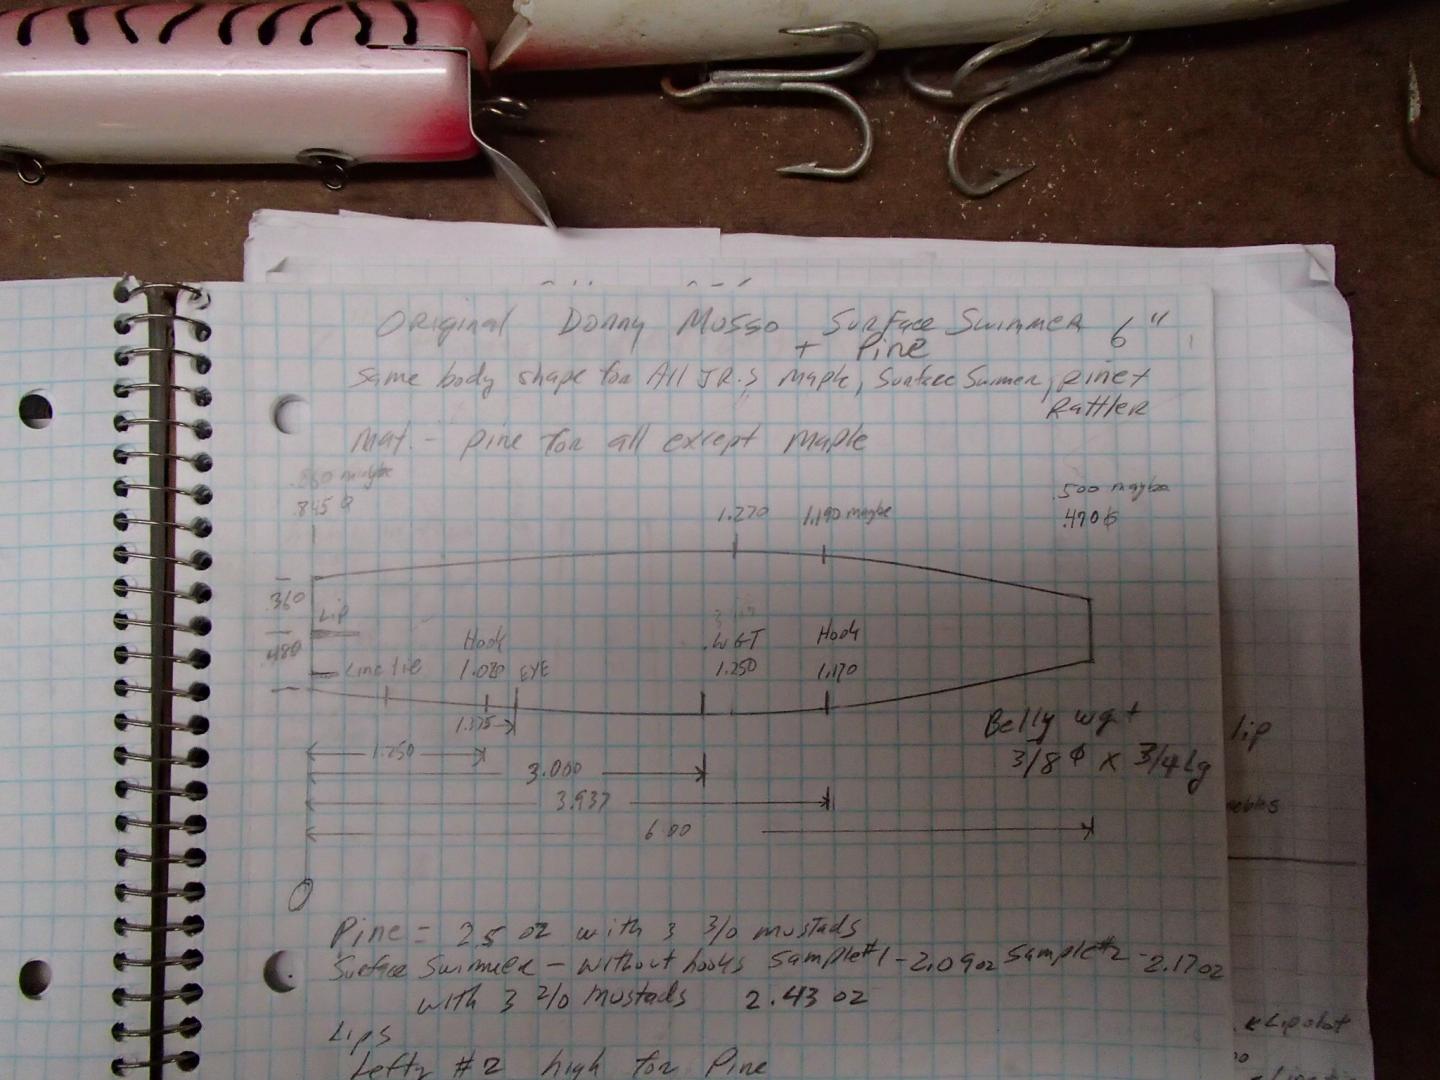 Original Donny Musso Surface Swimmer 6"
+ Pine
Same body shape for All JR.S Maple, Surface Swimmer, Pine +
Rattler
Mat. - pine for all except Maple
.860 maybe
.845 Φ
1.270 1.190 maybe
.500 maybe
.470 Φ
.360
Lip
Hook WGT Hook
.480
Line tie 1.080 EYE 1.250 1.170
1.375
1.250
Belly wgt
3/8 Φ x 3/4 Lg
3.000
3.937
6.00
0
Pine = 2.5 oz with 3 3/0 mustads
Surface Swimmer - without hooks Sample #1 - 2.09 oz Sample #2 - 2.17 oz
with 3 2/0 Mustads 2.43 oz
Lips
Lefty #2 high for Pine
lip